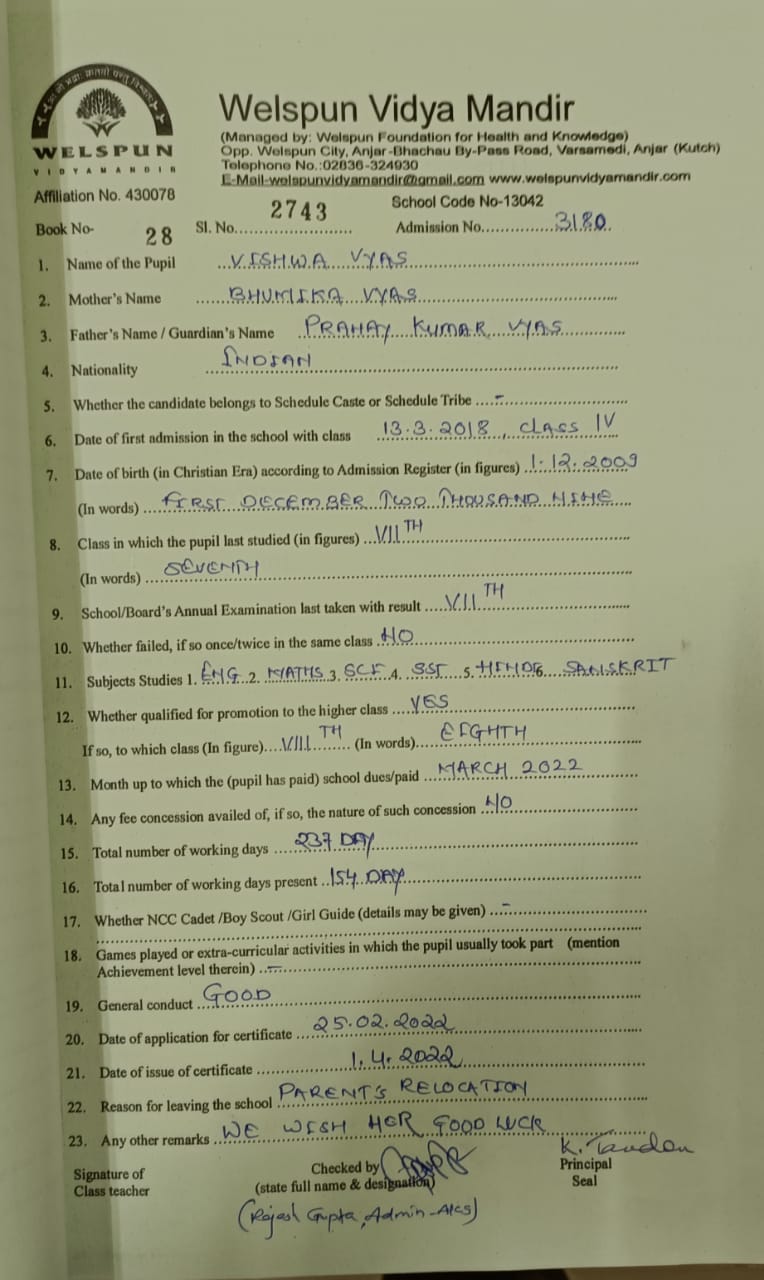 WELSPUN
VIDYAMANDIR
Welspun Vidya Mandir
(Managed by: Welspun Foundation for Health and Knowledge)
Opp. Welspun City, Anjar-Bhachau By-Pass Road, Varsamedi, Anjar (Kutch)
Telephone No.:02836-324930
E-Mail-welspunvidyamandir@gmail.com www.welspunvidyamandir.com
Affiliation No. 430078
School Code No-13042
Book No- 28 Sl. No. 2743 Admission No. 3180
1. Name of the Pupil VISHWA VYAS
2. Mother's Name BHUMIKA VYAS
3. Father's Name / Guardian's Name PRANAY KUMAR VYAS
4. Nationality INDIAN
5. Whether the candidate belongs to Schedule Caste or Schedule Tribe -
6. Date of first admission in the school with class 13.3.2018, CLASS IV
7. Date of birth (in Christian Era) according to Admission Register (in figures) 1.12.2009
(In words) FIRST DECEMBER TWO THOUSAND NINE
8. Class in which the pupil last studied (in figures) VII TH
(In words) SEVENTH
9. School/Board's Annual Examination last taken with result VII TH
10. Whether failed, if so once/twice in the same class NO
11. Subjects Studies 1. ENG 2. MATHS 3. SCI 4. SST 5. HINDI 6. SANSKRIT
12. Whether qualified for promotion to the higher class YES
If so, to which class (In figure) VIII TH (In words) EIGHTH
13. Month up to which the (pupil has paid) school dues/paid MARCH 2022
14. Any fee concession availed of, if so, the nature of such concession NO
15. Total number of working days 237 DAY
16. Total number of working days present 154 DAY
17. Whether NCC Cadet /Boy Scout /Girl Guide (details may be given) -
18. Games played or extra-curricular activities in which the pupil usually took part (mention
Achievement level therein) -
19. General conduct GOOD
20. Date of application for certificate 25.02.2022
21. Date of issue of certificate 1.4.2022
22. Reason for leaving the school PARENT'S RELOCATION
23. Any other remarks WE WISH HER GOOD LUCK
K. Tandon
Signature of Checked by Principal
Class teacher (state full name & designation) Seal
(Rajesh Gupta, Admin-